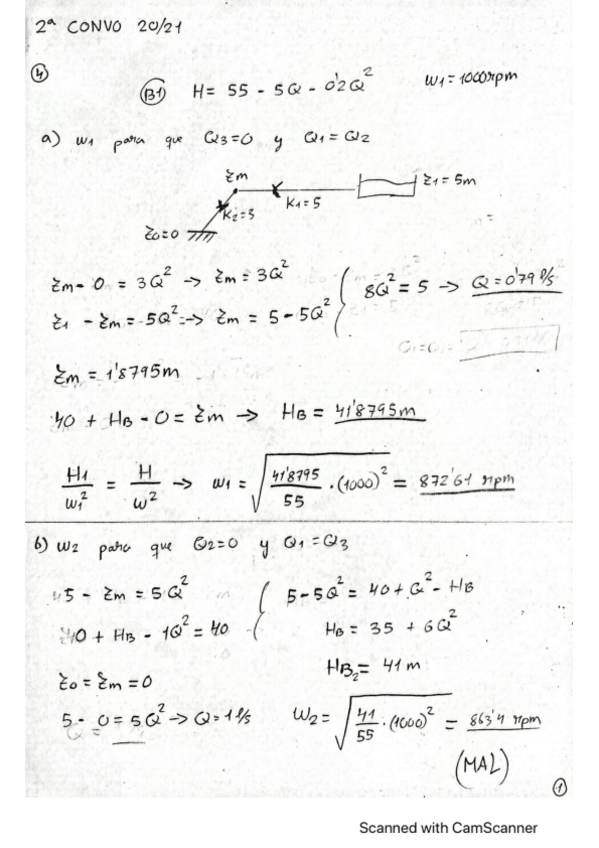 2ª CONVO 20/21
④
B1 H = 55 - 5Q - 0'2Q² ω1 = 1000rpm
a) ω1 para que Q3=0 y Q1=Q2
Zm
K1=5
Z1=5m
K2=3
Z0=0
Zm - 0 = 3Q² → Zm = 3Q²
Z1 - Zm = 5Q² → Zm = 5 - 5Q²
8Q² = 5 → Q = 0'79 l/s
Zm = 1'8795m
40 + HB - 0 = Zm → HB = 41'8795m
H1/ω1² = H/ω² → ω1 = √(41'8795/55 · (1000)²) = 872'61 rpm
b) ω2 para que Q2=0 y Q1=Q3
5 - Zm = 5Q²
5 - 5Q² = 40 + Q² - HB
40 + HB - 1Q² = 40
HB = 35 + 6Q²
Z0 = Zm = 0
HB2 = 41 m
5 - 0 = 5Q² → Q = 1 l/s
ω2 = √(41/55 · (1000)²) = 863'4 rpm
(MAL)
①
Scanned with CamScanner